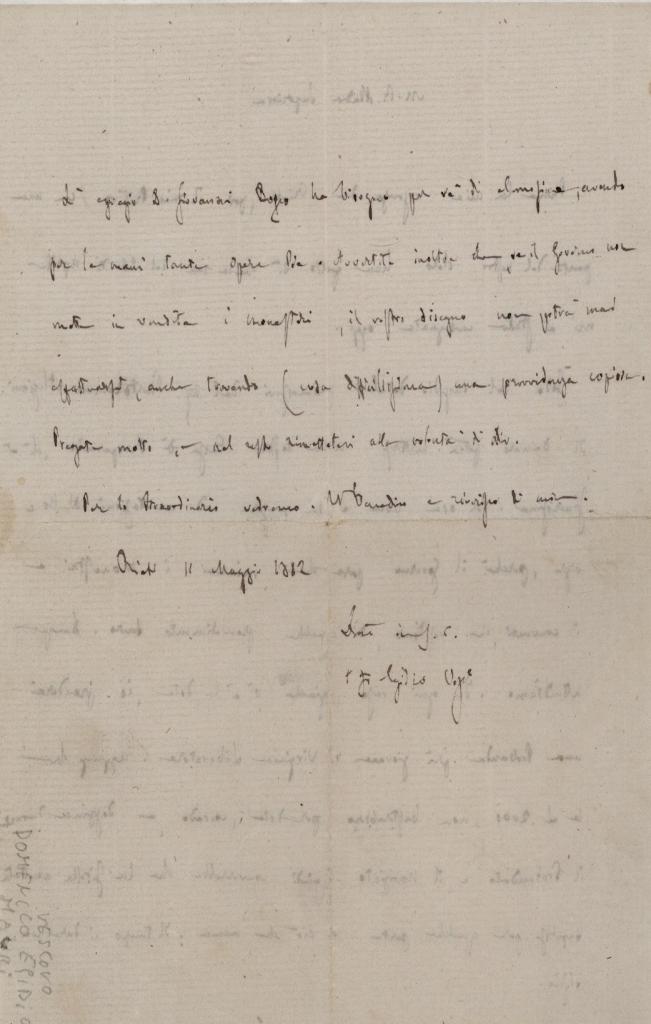 D. Giovanni Bosco ha bisogno per sé di elemosine, avendo
per le mani tante opere Pie. Avvertite inoltre che, se il Governo non
mette in vendita i monasteri, il vostro disegno non potrà mai
effettuarsi, anche trovando (cosa difficilissima) una provvidenza copiosa.
Pregate molto, e nel resto rimettetevi alla volontà di Dio.
Per lo Straordinario vedremo. Vi Benedico e di cuore.
Rieti 11 Maggio 1882
Egidio Vesc.
VESCOVO
DOMENICO EGIDIO
MAURI